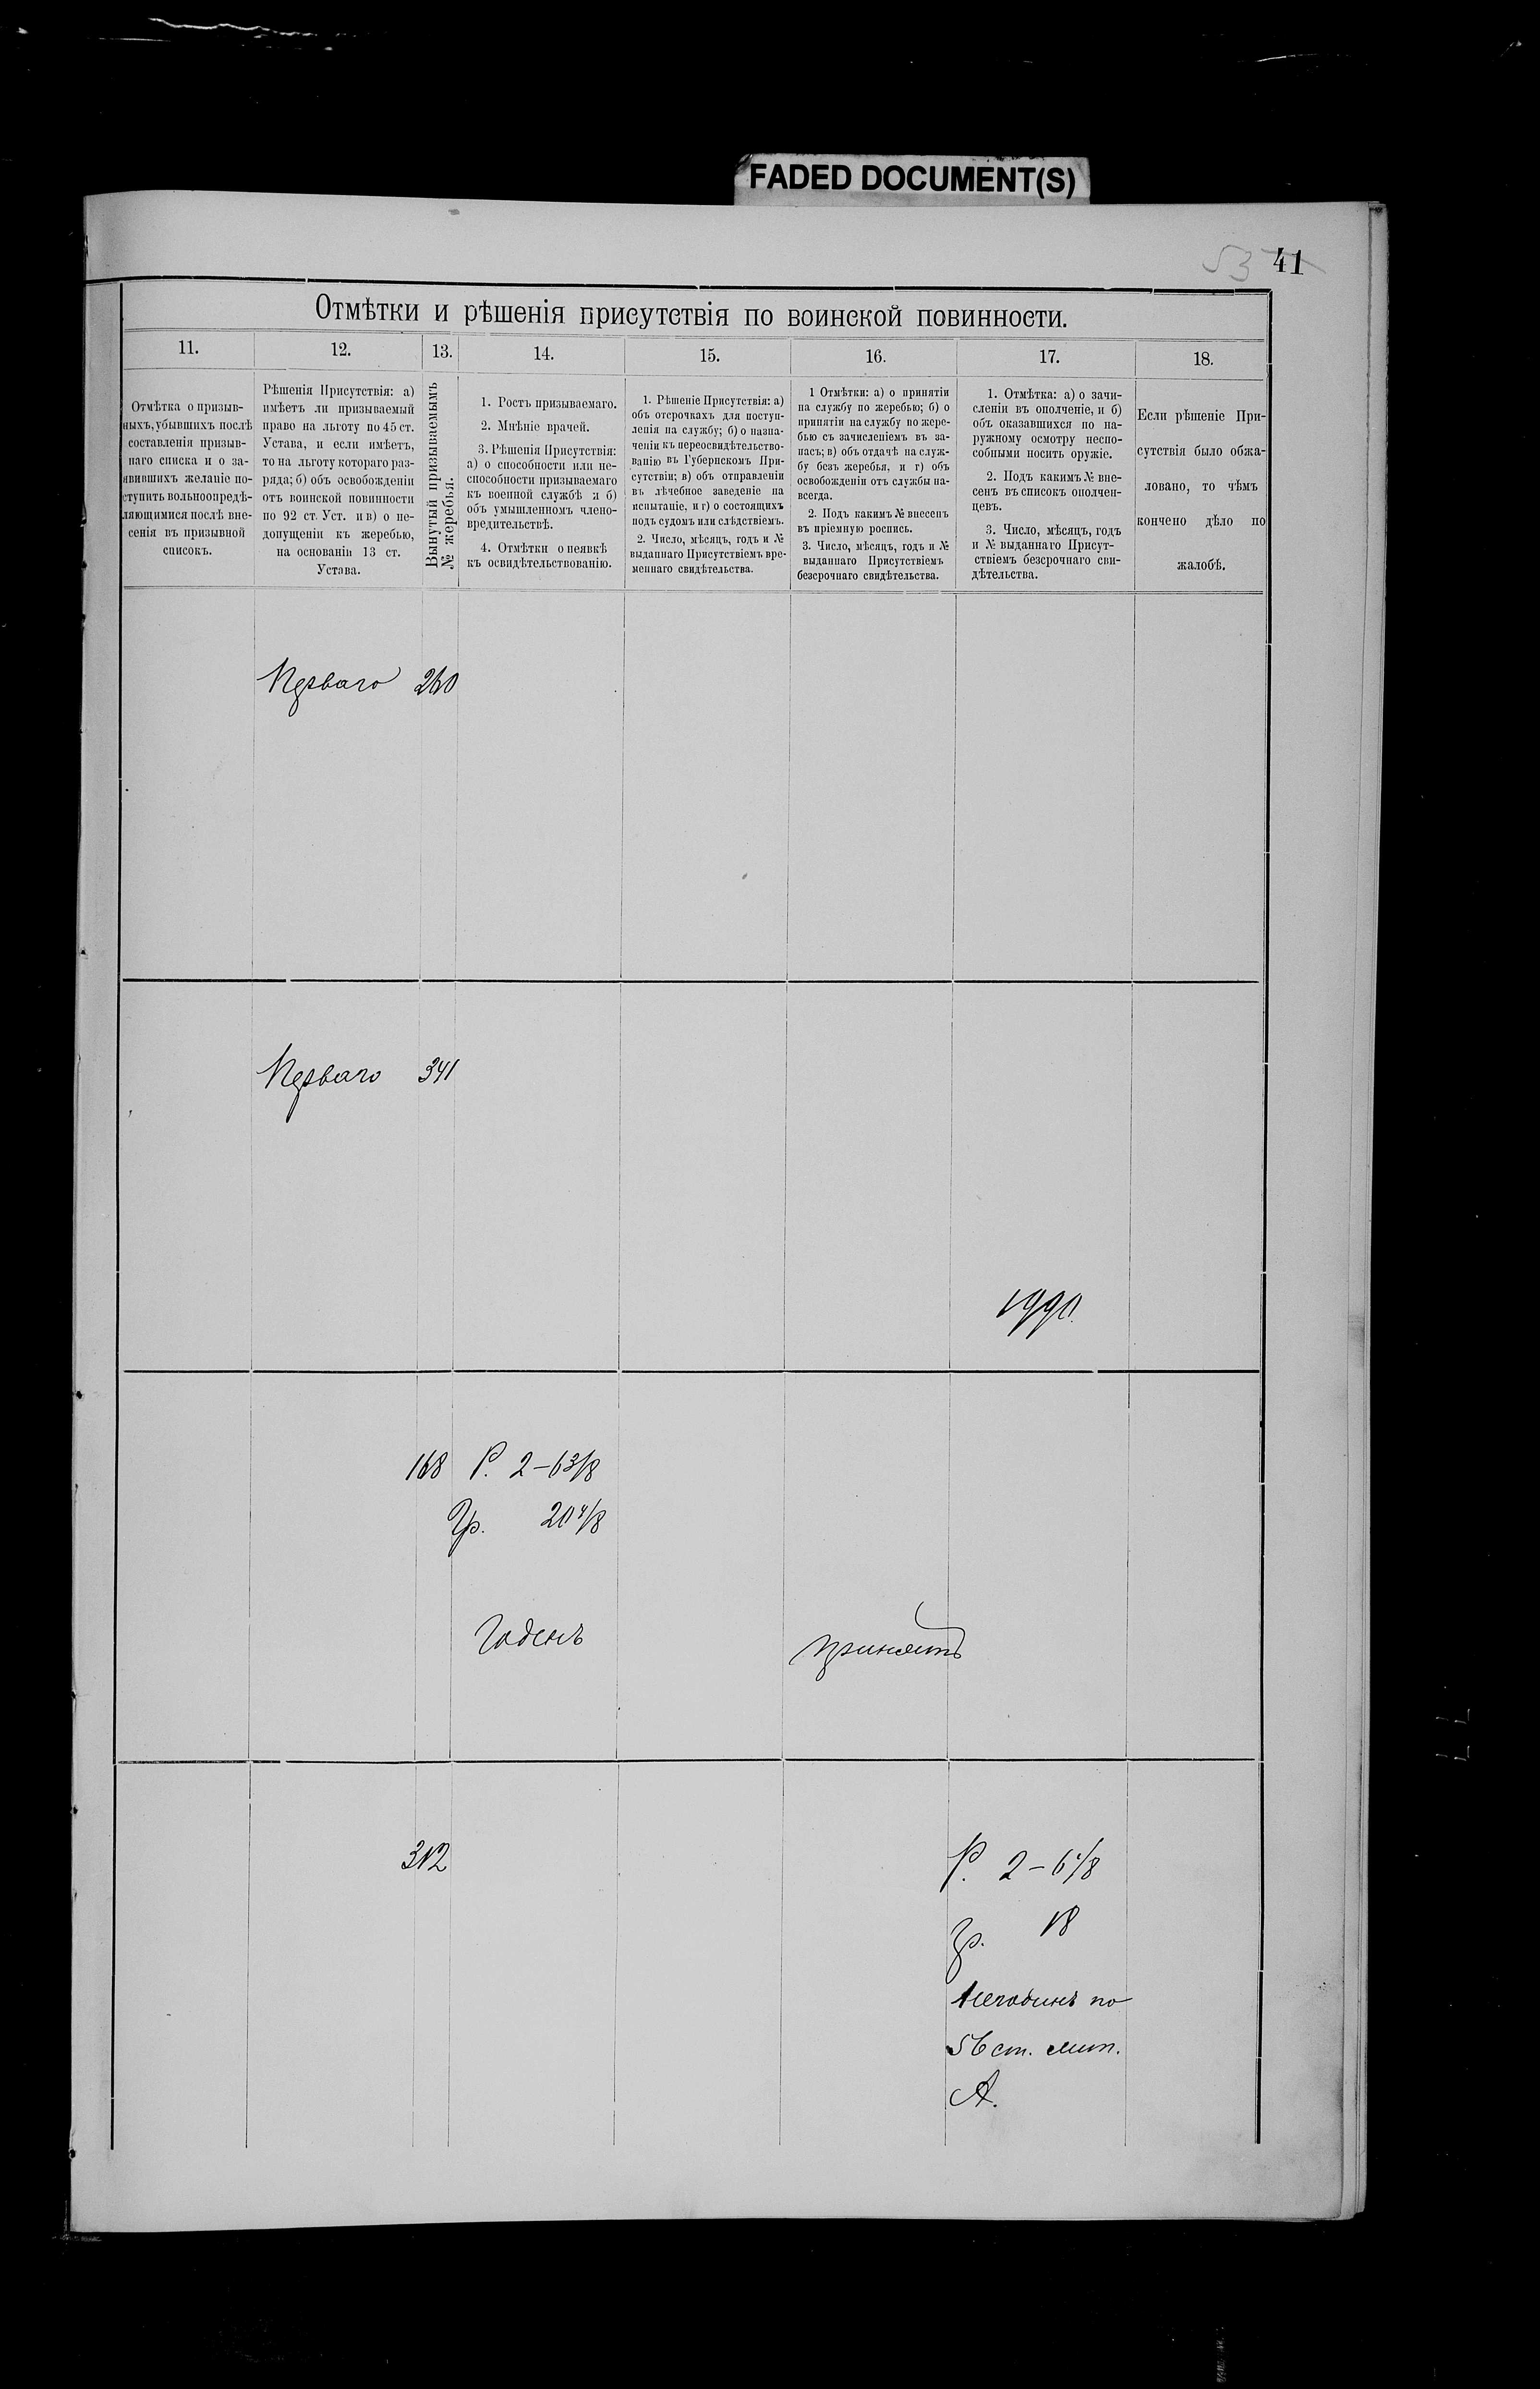 FADED DOCUMENT(S)
53 41
Отмѣтки и рѣшенія присутствія по воинской повинности.
11. 12. 13. 14. 15. 16. 17. 18.
Отмѣтка о призыв-
ныхъ, убывшихъ послѣ
составленія призыв-
наго списка и о за-
явившихъ желаніе по-
ступить вольноопредѣ-
ляющимися послѣ вне-
сенія въ призывной
списокъ.
Рѣшенія Присутствія: а)
имѣетъ ли призываемый
право на льготу по 45 ст.
Устава, и если имѣетъ,
то на льготу котораго раз-
ряда; б) объ освобожденіи
отъ воинской повинности
по 92 ст. Уст. и в) о не-
допущеніи къ жеребью,
на основаніи 13 ст.
Устава.
Вынутый призываемымъ
№ жеребья.
1. Ростъ призываемаго.
2. Мнѣніе врачей.
3. Рѣшенія Присутствія:
а) о способности или не-
способности призываемаго
къ военной службѣ и б)
объ умышленномъ члено-
вредительствѣ.
4. Отмѣтки о неявкѣ
къ освидѣтельствованію.
1. Рѣшеніе Присутствія: а)
объ отсрочкахъ для поступ-
ленія на службу; б) о назна-
ченіи къ переосвидѣтельство-
ванію въ Губернскомъ При-
сутствіи; в) объ отправленіи
въ лѣчебное заведеніе на
испытаніе, и г) о состоящихъ
подъ судомъ или слѣдствіемъ.
2. Число, мѣсяцъ, годъ и №
выданнаго Присутствіемъ вре-
меннаго свидѣтельства.
1 Отмѣтки: а) о принятіи
на службу по жеребью; б) о
принятіи на службу по жере-
бью съ зачисленіемъ въ за-
пасъ; в) объ отдачѣ на служ-
бу безъ жеребья, и г) объ
освобожденіи отъ службы на-
всегда.
2. Подъ какимъ № внесенъ
въ пріемную роспись.
3. Число, мѣсяцъ, годъ и №
выданнаго Присутствіемъ
безсрочнаго свидѣтельства.
1. Отмѣтка: а) о зачи-
сленіи въ ополченіе, и б)
объ оказавшихся по на-
ружному осмотру неспо-
собными носить оружіе.
2. Подъ какимъ № вне-
сенъ въ списокъ ополчен-
цевъ.
3. Число, мѣсяцъ, годъ
и № выданнаго Присут-
ствіемъ безсрочнаго сви-
дѣтельства.
Если рѣшеніе При-
сутствія было обжа-
ловано, то чѣмъ
кончено дѣло по
жалобѣ.
Перваго 260
Перваго 341
168 Р. 2-6 3/8
Гр. 20 4/8
Годенъ
принятъ
312
Р. 2-6 1/8
Гр. 18
Негоденъ по
56 ст. лит.
А.